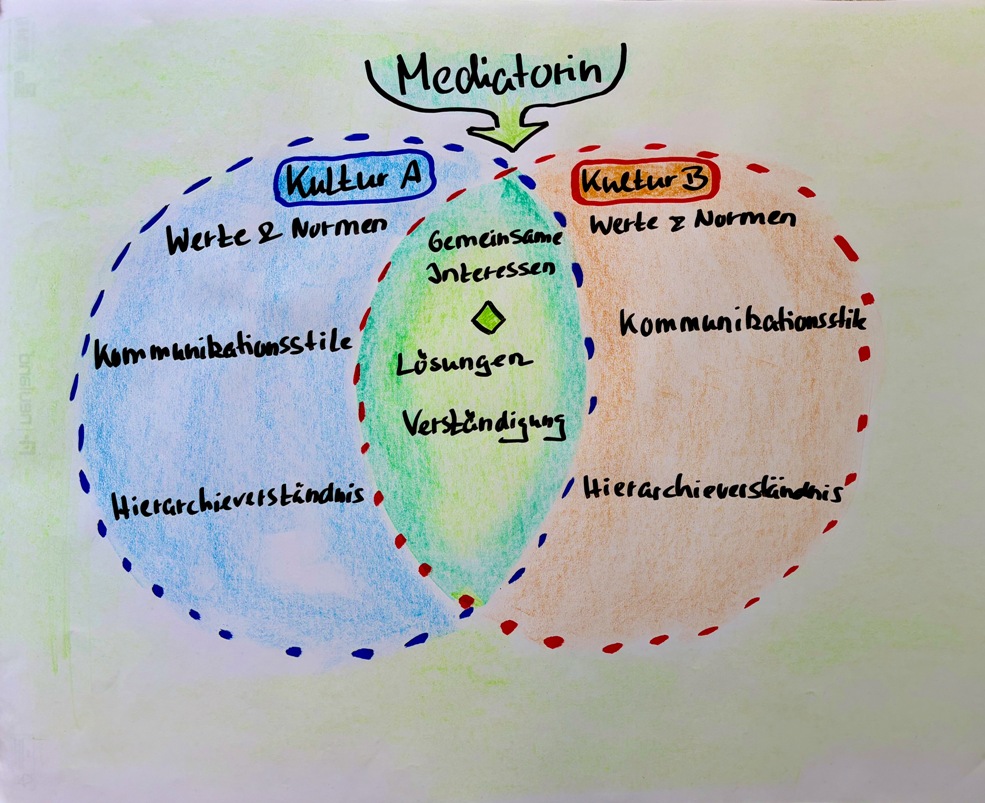 Mediatorin
Kultur A
Werte & Normen
Kommunikationsstile
Hierarchieverständnis
Gemeinsame
Interessen
Lösungen
Verständigung
Kultur B
Werte & Normen
Kommunikationsstile
Hierarchieverständnis